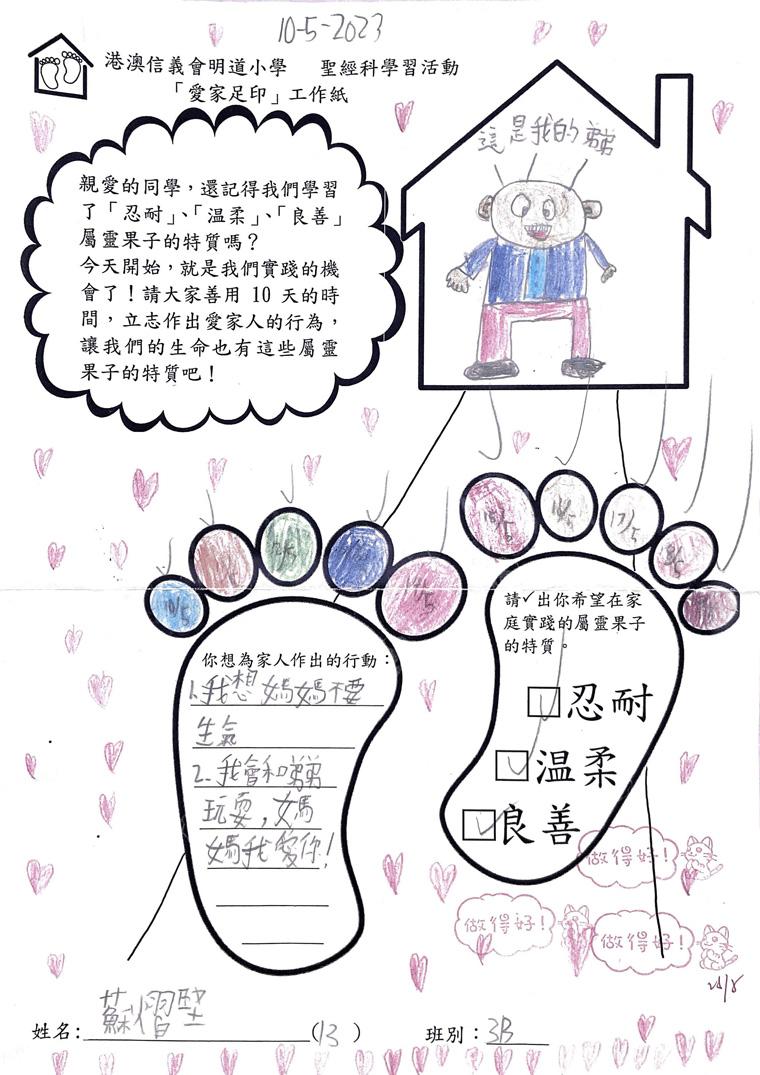 10-5-2023
港澳信義會明道小學 聖經科學習活動
「愛家足印」工作紙
親愛的同學，還記得我們學習
了「忍耐」、「温柔」、「良善」
屬靈果子的特質嗎？
今天開始，就是我們實踐的機
會了！請大家善用 10 天的時
間，立志作出愛家人的行為，
讓我們的生命也有這些屬靈
果子的特質吧！
這是我的弟弟
10/5
12/5
14/5
15/5
16/5
17/5
你想為家人作出的行動：
1.我想媽媽不要
生氣
2.我會和弟弟
玩耍，媽
媽我愛你！
請✓出你希望在家
庭實踐的屬靈果子
的特質。
忍耐
温柔
良善
做得好！
做得好！
做得好！
姓名: 蘇 (13)
班別：3B